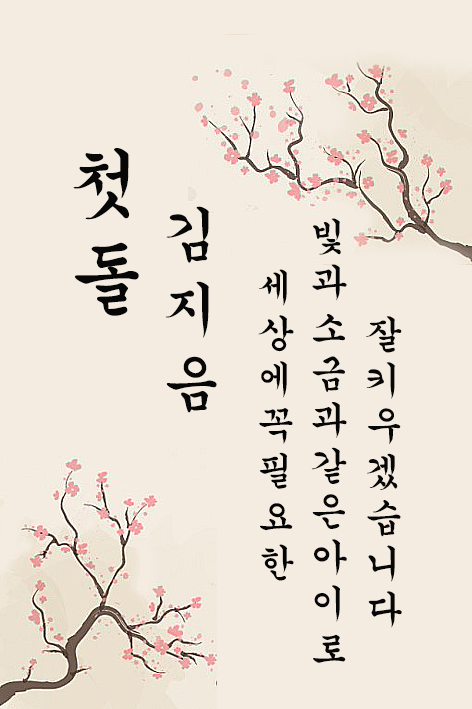 첫돌
김지음
세상에꼭필요한
빛과소금과같은아이로
잘키우겠습니다